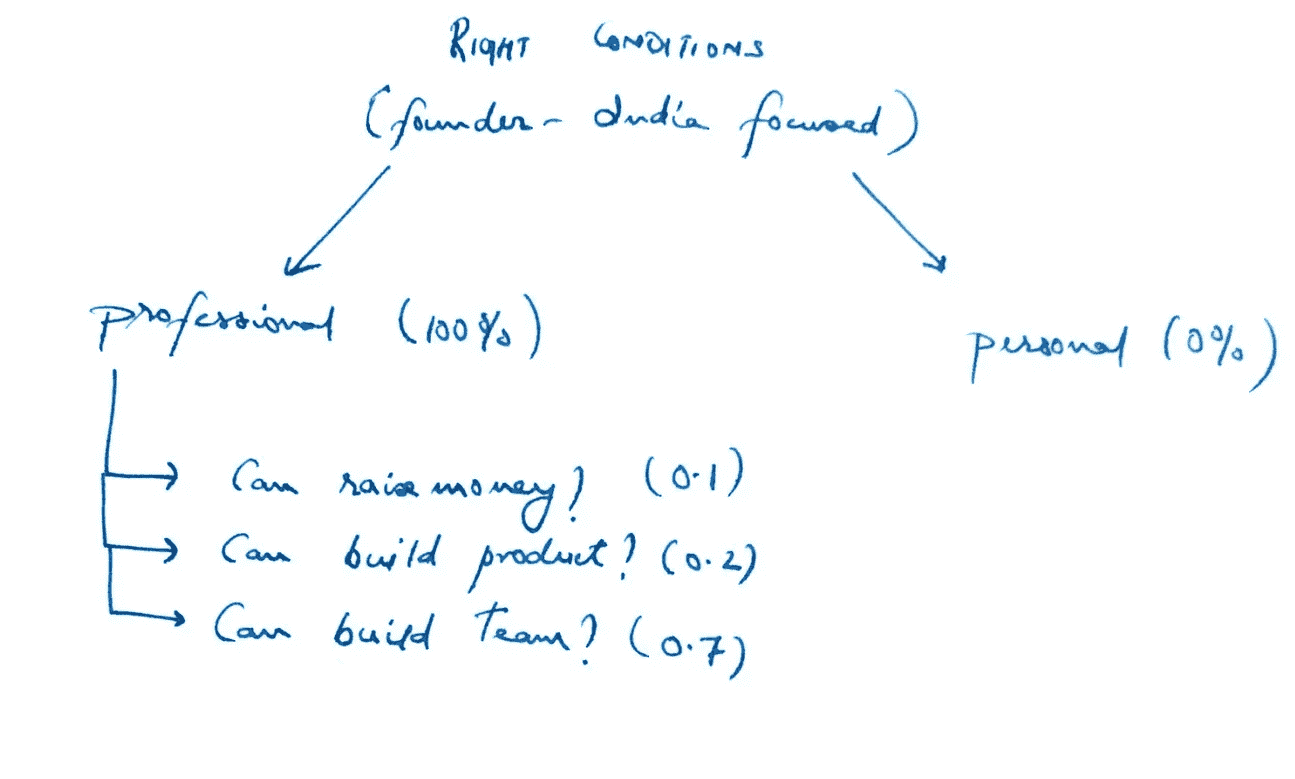 RIGHT CONDITIONS
(founder - India focused)
professional (100%)
personal (0%)
Can raise money? (0.1)
Can build product? (0.2)
Can build Team? (0.7)